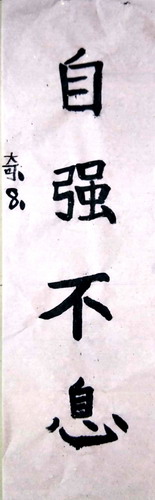 自强不息
奇8